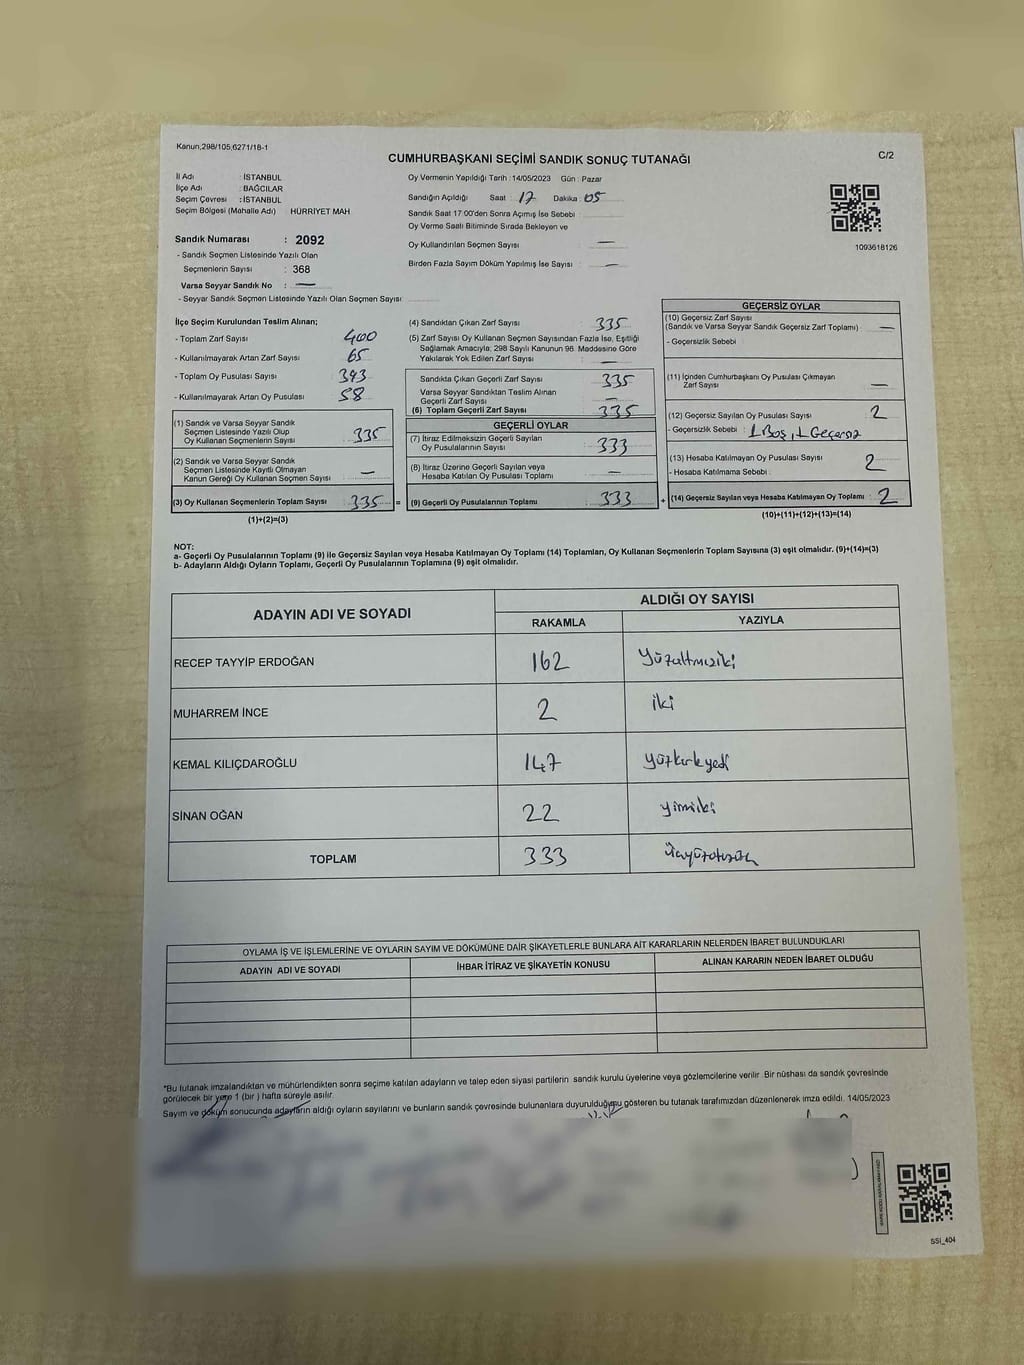 Kanun,298/105,6271/18-1
CUMHURBAŞKANI SEÇİMİ SANDIK SONUÇ TUTANAĞI
C/2
İl Adı : İSTANBUL
İlçe Adı : BAĞCILAR
Seçim Çevresi : İSTANBUL
Seçim Bölgesi (Mahalle Adı) : HÜRRİYET MAH
Sandık Numarası : 2092
- Sandık Seçmen Listesinde Yazılı Olan
Seçmenlerin Sayısı : 368
Varsa Seyyar Sandık No : —
- Seyyar Sandık Seçmen Listesinde Yazılı Olan Seçmen Sayısı:
Oy Vermenin Yapıldığı Tarih : 14/05/2023 Gün : Pazar
Sandığın Açıldığı Saat : 17 Dakika : 05
Sandık Saat 17:00'den Sonra Açımış İse Sebebi :
Oy Verme Saati Bitiminde Sırada Bekleyen ve
Oy Kullandırılan Seçmen Sayısı : —
Birden Fazla Sayım Döküm Yapılmış İse Sayısı : —
1093618126
İlçe Seçim Kurulundan Teslim Alınan;
- Toplam Zarf Sayısı : 400
- Kullanılmayarak Artan Zarf Sayısı : 65
- Toplam Oy Pusulası Sayısı : 393
- Kullanılmayarak Artan Oy Pusulası : 58
(1) Sandık ve Varsa Seyyar Sandık
Seçmen Listesinde Yazılı Olup
Oy Kullanan Seçmenlerin Sayısı : 335
(2) Sandık ve Varsa Seyyar Sandık
Seçmen Listesinde Kayıtlı Olmayan
Kanun Gereği Oy Kullanan Seçmen Sayısı : —
(3) Oy Kullanan Seçmenlerin Toplam Sayısı : 335 =
(1)+(2)=(3)
(4) Sandıktan Çıkan Zarf Sayısı : 335
(5) Zarf Sayısı Oy Kullanan Seçmen Sayısından Fazla İse, Eşitliği
Sağlamak Amacıyla; 298 Sayılı Kanunun 98. Maddesine Göre
Yakılarak Yok Edilen Zarf Sayısı : —
Sandıkta Çıkan Geçerli Zarf Sayısı : 335
Varsa Seyyar Sandıktan Teslim Alınan
Geçerli Zarf Sayısı : —
(6) Toplam Geçerli Zarf Sayısı : 335
GEÇERLİ OYLAR
(7) İtiraz Edilmeksizin Geçerli Sayılan
Oy Pusulalarının Sayısı : 333
(8) İtiraz Üzerine Geçerli Sayılan veya
Hesaba Katılan Oy Pusulası Toplamı : —
(9) Geçerli Oy Pusulalarının Toplamı : 333 +
GEÇERSİZ OYLAR
(10) Geçersiz Zarf Sayısı
(Sandık ve Varsa Seyyar Sandık Geçersiz Zarf Toplamı) : —
- Geçersizlik Sebebi :
(11) İçinden Cumhurbaşkanı Oy Pusulası Çıkmayan
Zarf Sayısı : —
(12) Geçersiz Sayılan Oy Pusulası Sayısı : 2
- Geçersizlik Sebebi : 1 Boş, 1 Geçersiz
(13) Hesaba Katılmayan Oy Pusulası Sayısı : 2
- Hesaba Katılmama Sebebi :
(14) Geçersiz Sayılan veya Hesaba Katılmayan Oy Toplamı : 2
(10)+(11)+(12)+(13)=(14)
NOT:
a- Geçerli Oy Pusulalarının Toplamı (9) ile Geçersiz Sayılan veya Hesaba Katılmayan Oy Toplamı (14) Toplamları, Oy Kullanan Seçmenlerin Toplam Sayısına (3) eşit olmalıdır. (9)+(14)=(3)
b- Adayların Aldığı Oyların Toplamı, Geçerli Oy Pusulalarının Toplamına (9) eşit olmalıdır.
ADAYIN ADI VE SOYADI
ALDIĞI OY SAYISI
RAKAMLA YAZIYLA
RECEP TAYYİP ERDOĞAN 162 yüzaltmışiki
MUHARREM İNCE 2 iki
KEMAL KILIÇDAROĞLU 147 yüzkırkyedi
SİNAN OĞAN 22
TOPLAM 333
OYLAMA İŞ VE İŞLEMLERİNE VE OYLARIN SAYIM VE DÖKÜMÜNE DAİR ŞİKAYETLERLE BUNLARA AİT KARARLARIN NELERDEN İBARET BULUNDUKLARI
ADAYIN ADI VE SOYADI İHBAR İTİRAZ VE ŞİKAYETİN KONUSU ALINAN KARARIN NEDEN İBARET OLDUĞU
*Bu tutanak imzalandıktan ve mühürlendikten sonra seçime katılan adayların ve talep eden siyasi partilerin sandık kurulu üyelerine veya gözlemcilerine verilir. Bir nüshası da sandık çevresinde
görülecek bir yere 1 (bir ) hafta süreyle asılır.
Sayım ve döküm sonucunda adayların aldığı oyların sayılarını ve bunların sandık çevresinde bulunanlara duyurulduğunu gösteren bu tutanak tarafımızdan düzenlenerek imza edildi. 14/05/2023
SSI_404